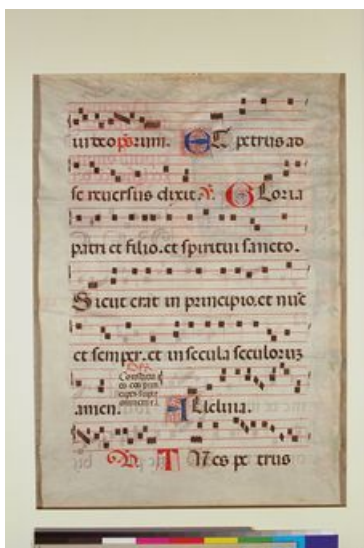 ET petrus ad
se reversus dixit. V. Gloria
patri et filio. et spiritui sancto.
Sicut erat in principio. et nūc
et semper. et in secula seculoruz
amen. Alleluia.
pe trus